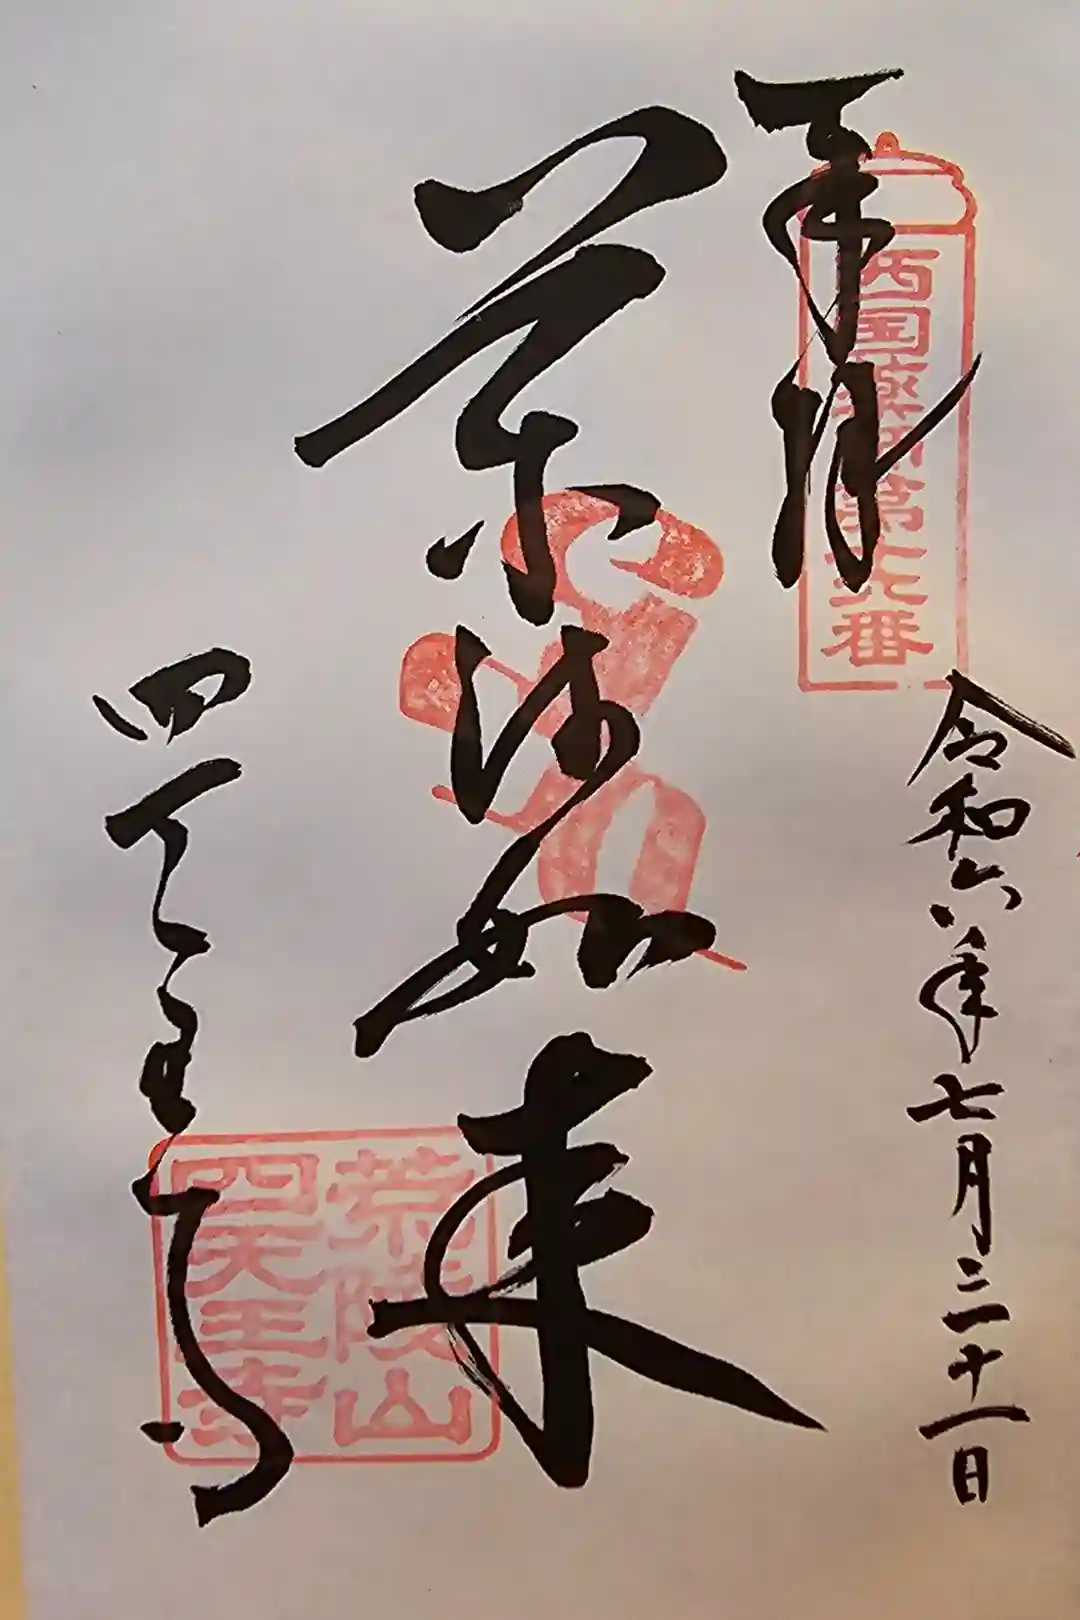 奉拝
西国薬師第十六番
令和六年七月三十一日
薬師如来
四天王寺
荒陵山
四天王寺